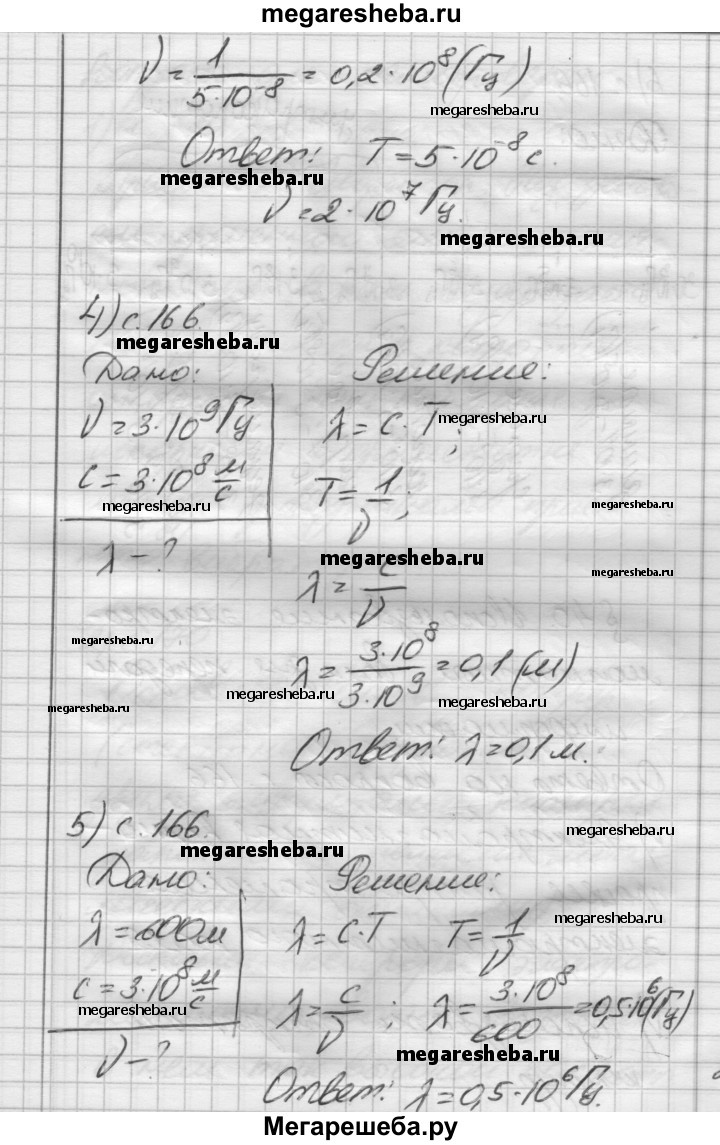 megaresheba.ru
ν = 1/(5·10⁻⁸) = 0,2·10⁸ (Гц)
megaresheba.ru
Ответ: T = 5·10⁻⁸ с.
megaresheba.ru
ν = 2·10⁷ Гц.
megaresheba.ru
4) с. 166.
megaresheba.ru
Дано: Решение:
ν = 3·10⁹ Гц λ = c·T;
megaresheba.ru
c = 3·10⁸ м/с T = 1/ν;
megaresheba.ru megaresheba.ru
λ - ?
megaresheba.ru megaresheba.ru
λ = c/ν
megaresheba.ru
λ = 3·10⁸/3·10⁹ = 0,1 (м)
megaresheba.ru megaresheba.ru
megaresheba.ru
Ответ: λ = 0,1 м.
5) с. 166.
megaresheba.ru
megaresheba.ru
Дано: Решение:
λ = 600 м λ = c·T T = 1/ν
megaresheba.ru
c = 3·10⁸ м/с λ = c/ν; λ = 3·10⁸/600 = 0,5·10⁶ (Гц)
megaresheba.ru
ν - ?
megaresheba.ru
Ответ: λ = 0,5·10⁶ Гц.
Мегарешеба.ру